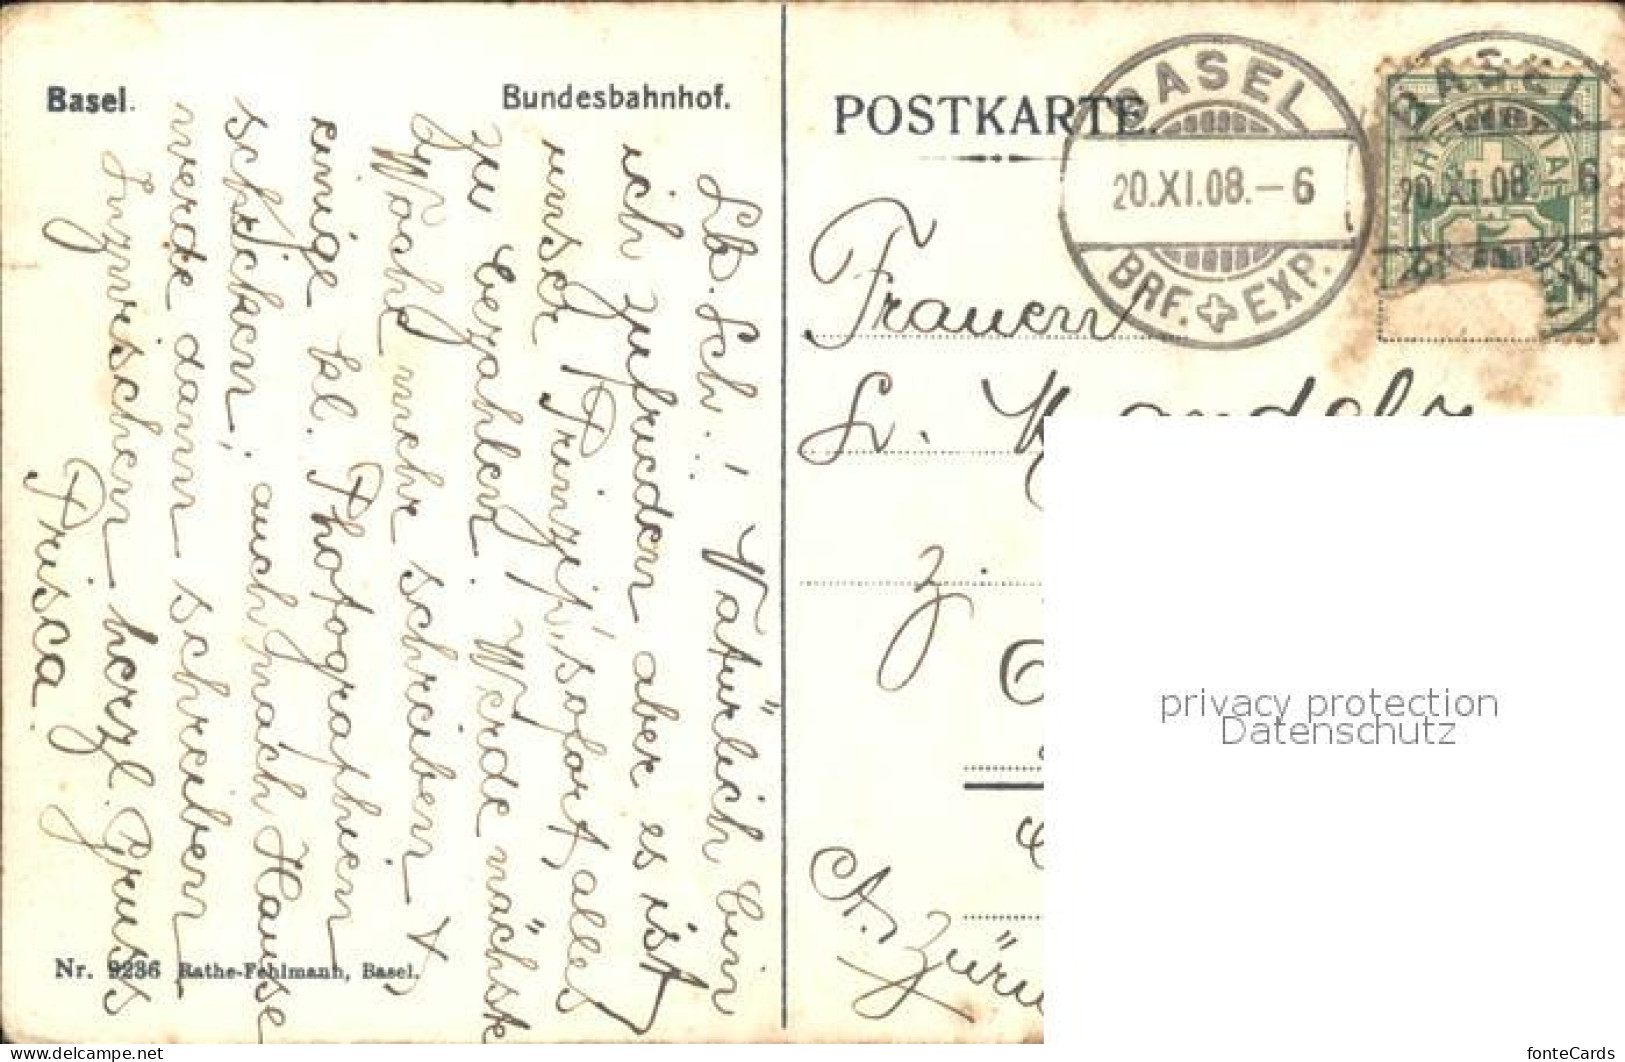 Basel.
Bundesbahnhof.
Lb. Sch.! Natürlich bin
ich zufrieden aber es ist
unser Prinzip, sofort alles
zu bezahlen! Werde nächste
Woche mehr schreiben &
einige kl. Photographien
schicken, auch nach Hause
werde dann schreiben
Inzwischen herzl. Gruss
Prisca.
Nr. 9236 Rathe-Fehlmann, Basel.
POSTKARTE.
BASEL
20.XI.08.–6
BRF. EXP.
BASEL
HELVETIA
20.XI.08 6
XP.
Frauen
z.
privacy protection
Datenschutz
www.delcampe.net
fonteCards